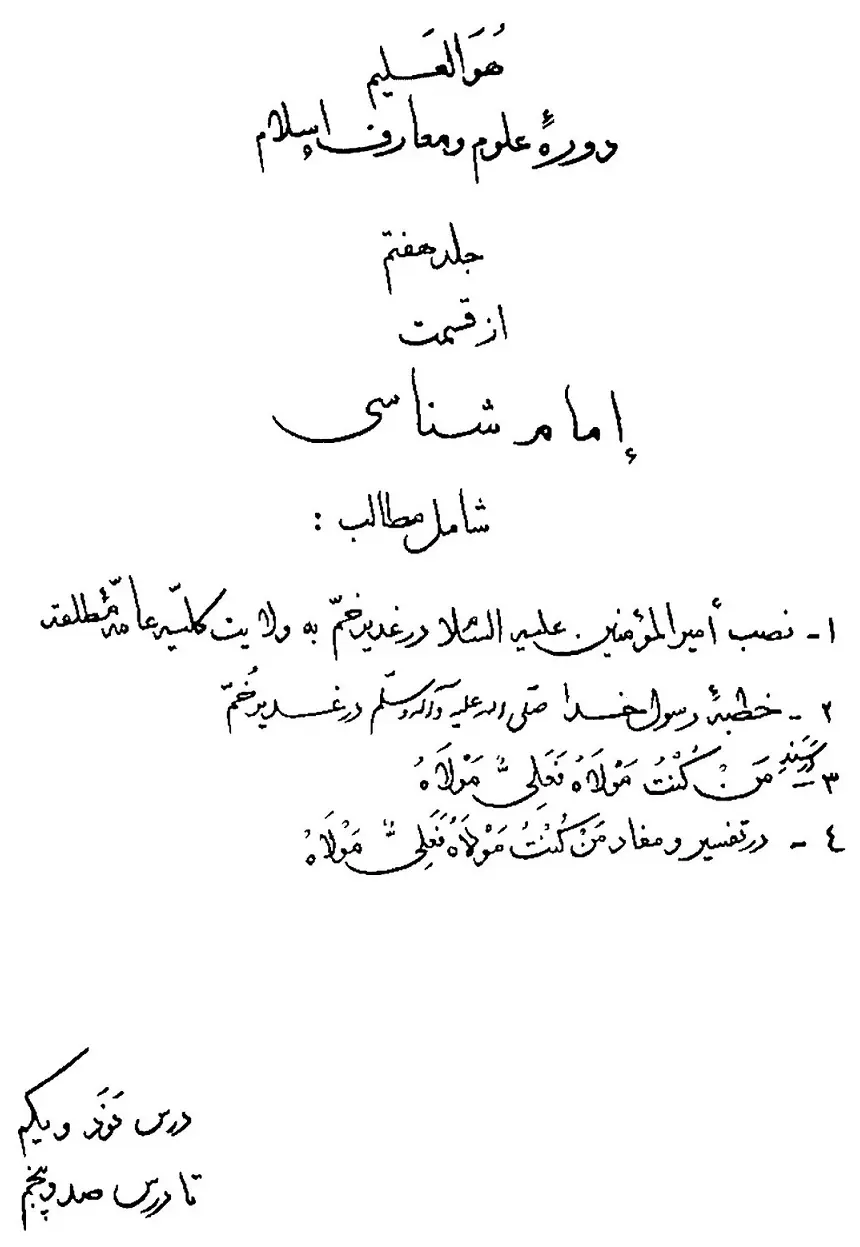 هُوَ العَليم
دورهٔ علوم و معارف إسلام
جلد هفتم
از قسمت
إمام شناسى
شامل مطالب :
١- نصب أميرالمؤمنين عليه السّلام در غدير خمّ به ولايت كلّيّه عامّه مُطلقه
٢- خطبهٔ رسول خدا صلّى الله عليه وآله وسلّم در غدير خُمّ
٣- در سَنَدِ مَنْ كُنْتُ مَوْلَاهُ فَعَلِىٌّ مَوْلَاهُ
٤- در تفسير و مفاد مَنْ كُنْتُ مَوْلَاهُ فَعَلِىٌّ مَوْلَاهُ
درس نَوَد و يكم
تا درس صد و پنجم